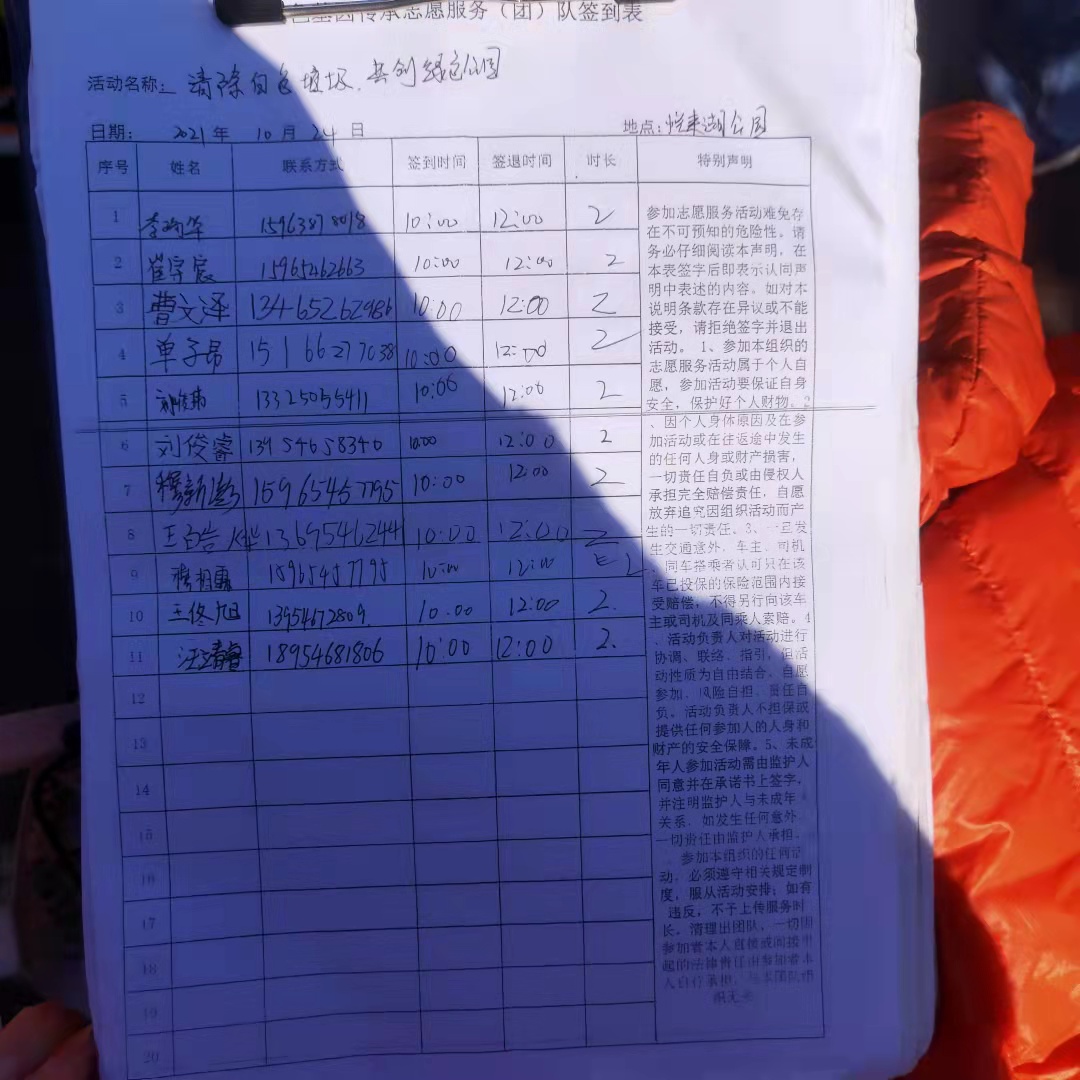 色基因传承志愿服务（团）队签到表
活动名称: 清除白色垃圾.共创绿色公园
日期: 2021年 10月 24日 地点: 悦来湖公园
序号 姓名 联系方式 签到时间 签退时间 时长 特别声明
1 15963878018 10:00 12:00 2
2 崔宇宸 15965462663 10:00 12:00 2
3 曹文泽 13465262986 10:00 12:00 2
4 单子昂 15166277038 10:00 12:00 2
5 13325055411 10:00 12:00 2
6 刘俊睿 13954658340 10:00 12:00 2
7 15965457795 10:00 12:00 2
8 1369546244 10:00 12:00 2
9 15965457795 10:00 12:00 2
10 王佟旭 13954672809. 10.00 12:00 2.
11 18954681806 10:00 12:00 2.
12
13
14
15
16
17
18
19
20
参加志愿服务活动难免存
在不可预知的危险性，请
务必仔细阅读本声明，在
本表签字后即表示认同声
明中表述的内容。如对本
说明条款存在异议或不能
接受，请拒绝签字并退出
活动。 1、参加本组织的
志愿服务活动属于个人自
愿，参加活动要保证自身
安全，保护好个人财物。2
、因个人身体原因及在参
加活动或在往返途中发生
的任何人身或财产损害，
一切责任自负或由侵权人
承担完全赔偿责任，自愿
放弃追究因组织活动而产
生的一切责任、3、一旦发
生交通意外，车主、司机
、同车搭乘者认可只在该
车已投保的保险范围内接
受赔偿，不得另行向该车
主或司机及同乘人索赔。4
、活动负责人对活动进行
协调、联络、指引，但活
动性质为自由结合，自愿
参加、风险自担、责任自
负。活动负责人不担保或
提供任何参加人的人身和
财产的安全保障。5、未成
年人参加活动需由监护人
同意并在承诺书上签字，
并注明监护人与未成年
关系，如发生任何意外
一切责任由监护人承担。
参加本组织的任何活
动，必须遵守相关规定制
度，服从活动安排；如有
违反，不予上传服务时
长，清理出团队，一切因
参加者本人直接或间接引
起的法律责任由参加者本
人自行承担，与本团队组
织无关